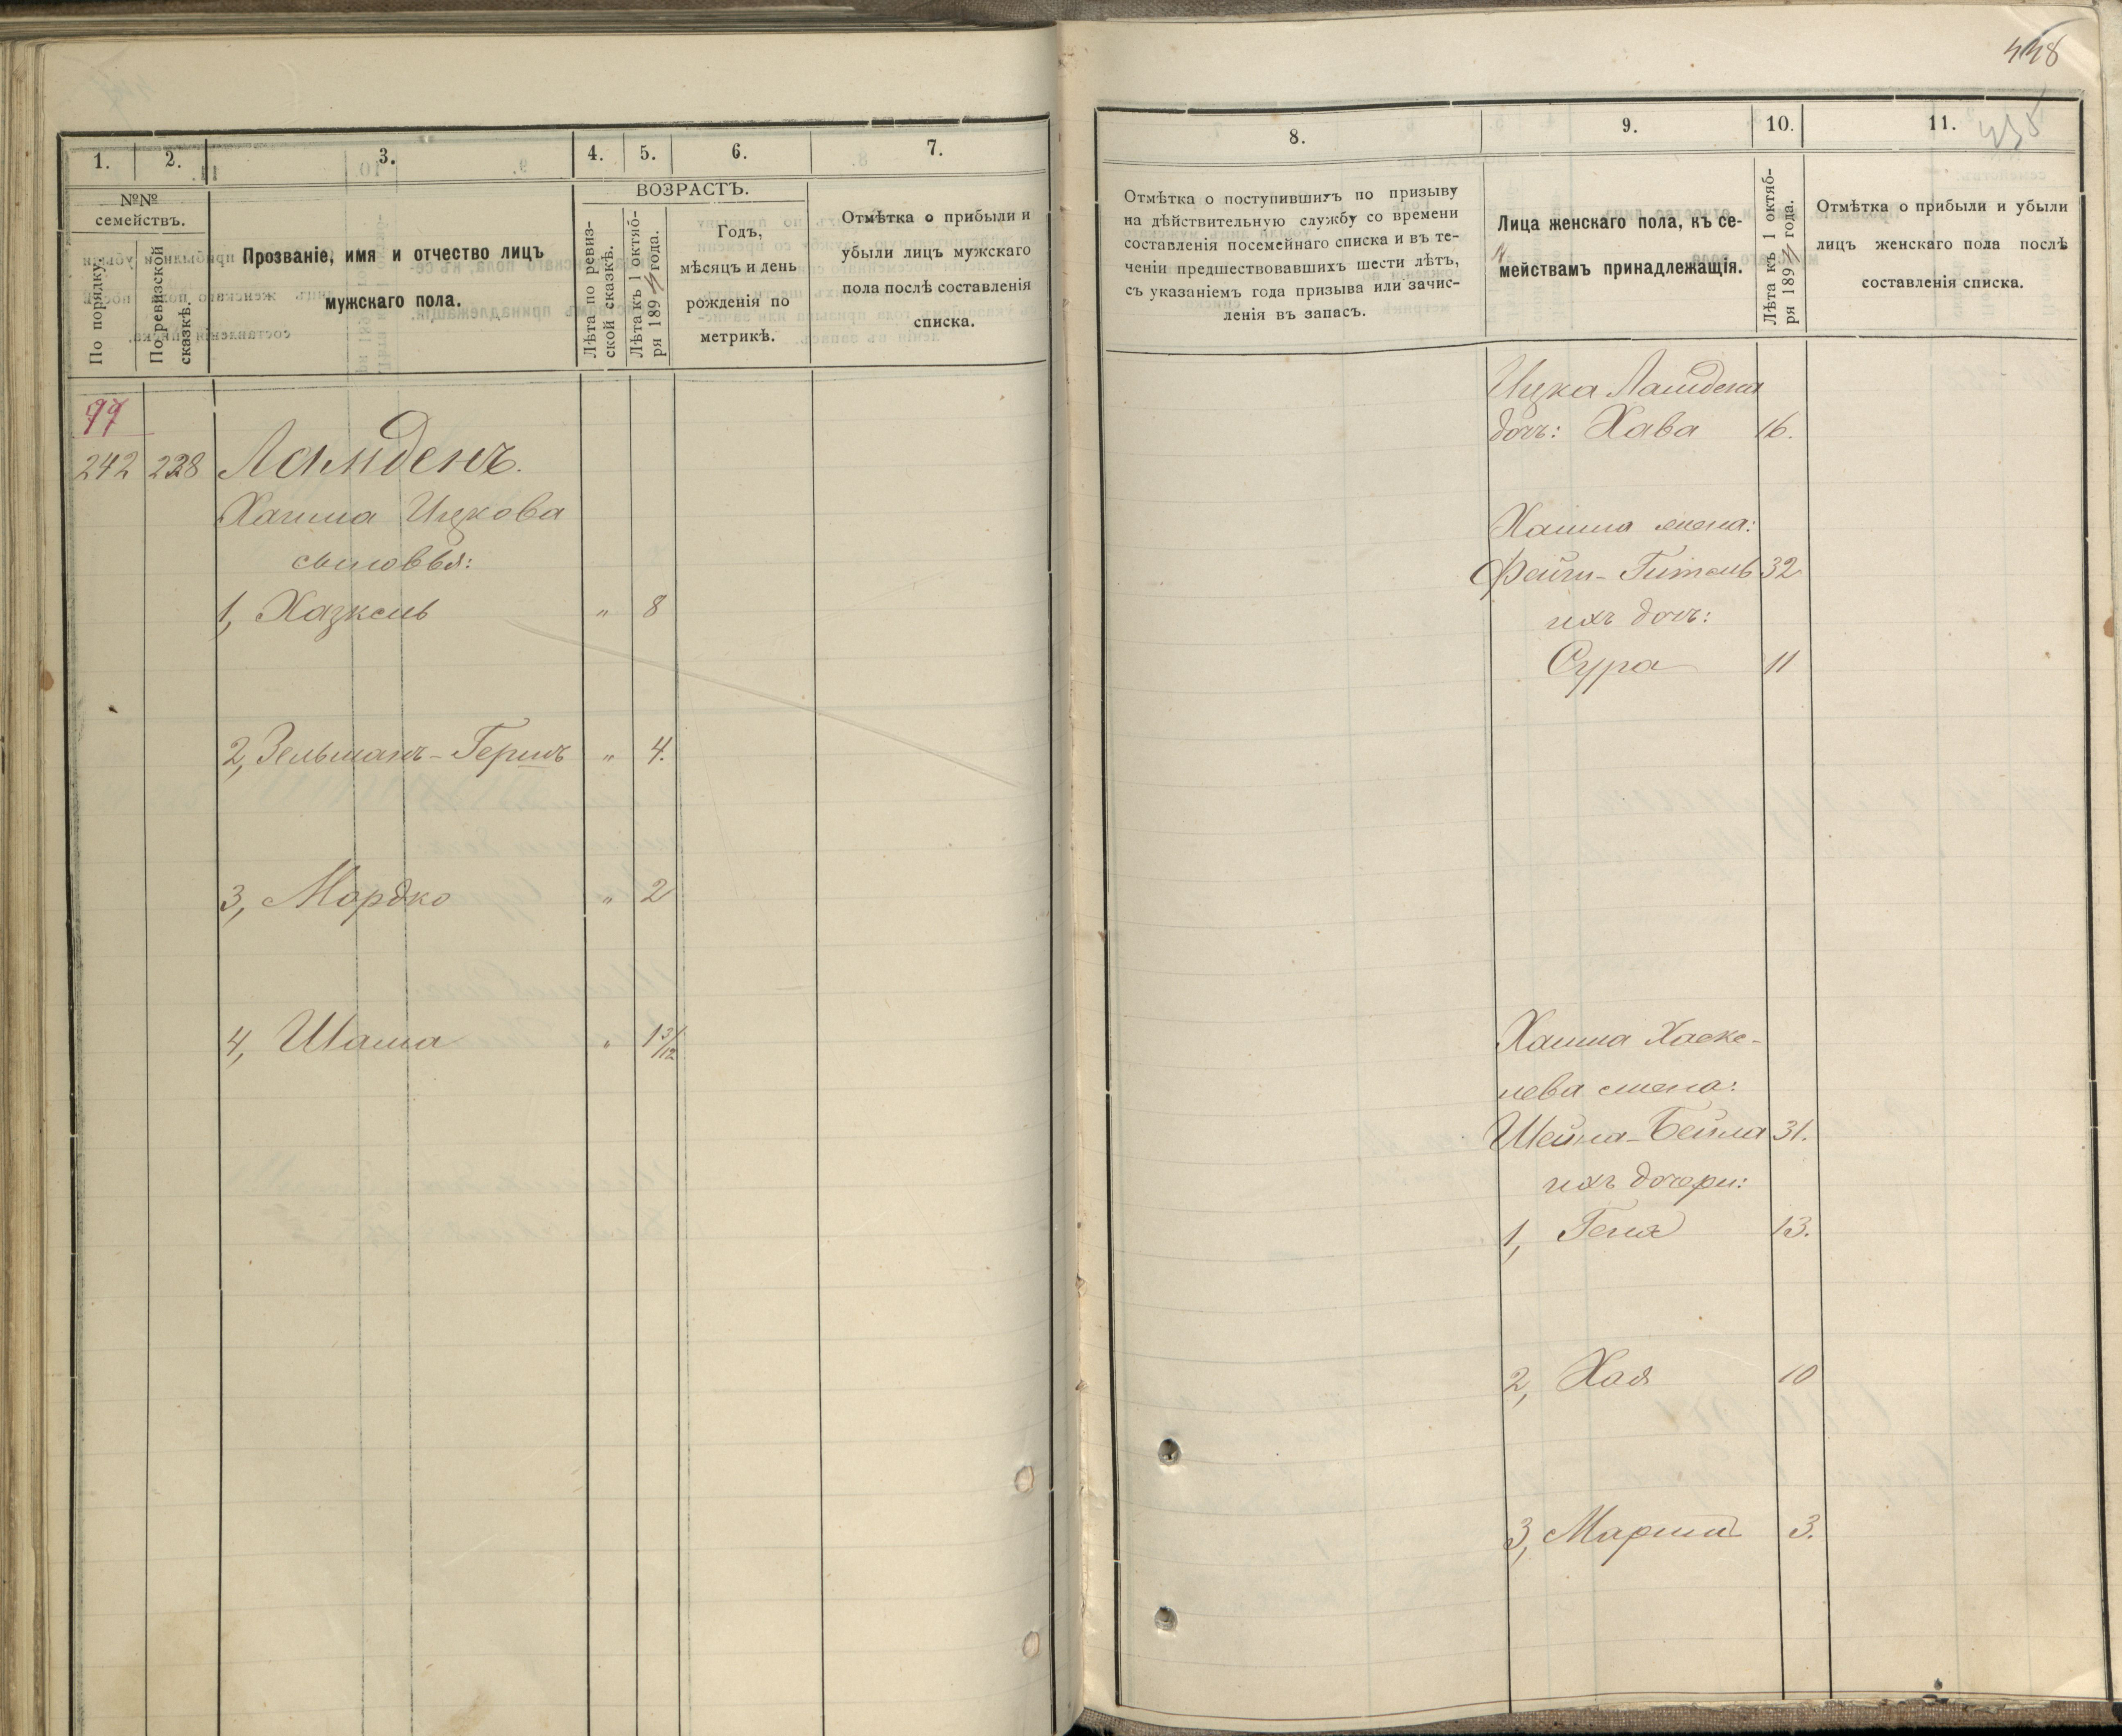 448
1.
2.
3.
4.
5.
6.
7.
№№
семействъ.
По порядку.
По ревизской
сказкѣ.
Прозваніе, имя и отчество лицъ
мужскаго пола.
ВОЗРАСТЪ.
Лѣта по ревиз-
ской сказкѣ.
Лѣта къ 1 октяб-
ря 189 года.
Годъ,
мѣсяцъ и день
рожденія по
метрикѣ.
Отмѣтка о прибыли и
убыли лицъ мужскаго
пола послѣ составленія
списка.
77
242 228 Ламденъ.
Хаима Ицкова
сыновья:
1, Хазкель " 8
2, Зельманъ-Гершъ " 4.
3, Мордко " 2
4, Шама " 1 3/12
8.
9.
10.
11.
Отмѣтка о поступившихъ по призыву
на дѣйствительную службу со времени
составленія посемейнаго списка и въ те-
ченіи предшествовавшихъ шести лѣтъ,
съ указаніемъ года призыва или зачис-
ленія въ запасъ.
Лица женскаго пола, къ се-
мействамъ принадлежащія.
Лѣта къ 1 октяб-
ря 189 года.
Отмѣтка о прибыли и убыли
лицъ женскаго пола послѣ
составленія списка.
Ицка Ламдена
дочь: Хава 16.
Хаима жена:
Фейги-Гитель 32
ихъ дочь:
Сура 11
Хаима Хаске-
лева жена:
Шейна-Бейла 31.
ихъ дочери:
1, Геня 13.
2, Хая 10
3, 3.